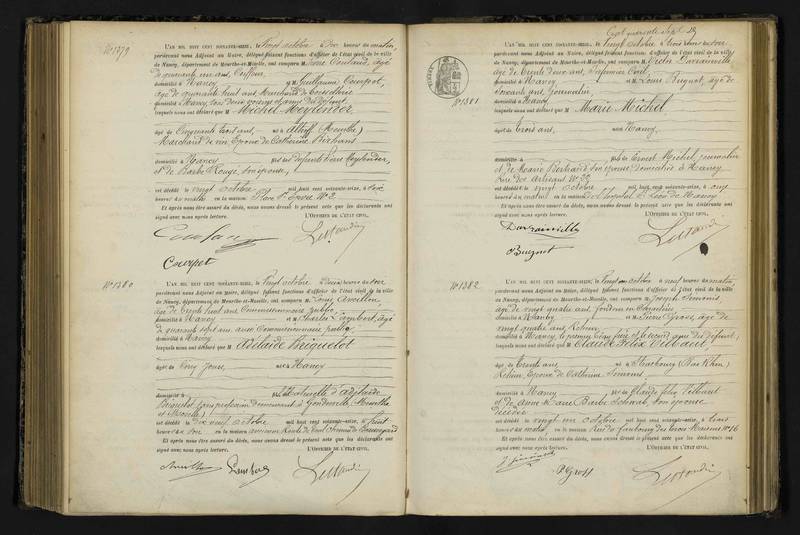 N° 1379
L'AN MIL HUIT CENT SOIXANTE-SEIZE, le Vingt octobre Dix heures du matin,
pardevant nous Adjoint au Maire, délégué faisant fonctions d'officier de l'état civil de la ville
de Nancy, département de Meurthe-et-Moselle, ont comparu M. âgé
de quarante un ans, Coiffeur,
domicilié à Nancy et M. Guillaume Courpot,
âgé de quarante huit ans Marchand de
domicilié à Nancy, tous deux voisins et amis du défunt,
lesquels nous ont déclaré que M. Michel Meylender
âgé de Cinquante trois ans, né à Altroff (Meurthe)
Marchand de vin, Epoux de Catherine
domicilié à Nancy fils des défunts Pierre Meylender,
et de Barbe Rouge, son épouse,
est décédé le vingt octobre mil huit cent soixante-seize, à
heures du matin en la maison Place St Epvre N° 2
Et après nous être assuré du décès, nous avons dressé le présent acte que les déclarants ont
signé avec nous après lecture. L'OFFICIER DE L'ÉTAT CIVIL,
Courpot
N° 1380
L'AN MIL HUIT CENT SOIXANTE-SEIZE, le Vingt octobre Deux heures du soir
pardevant nous Adjoint au Maire, délégué faisant fonctions d'officier de l'état civil de la ville
de Nancy, département de Meurthe-et-Moselle, ont comparu M. Louis
âgé de Trente huit ans Commissionnaire public,
domicilié à Nancy et M. Charles Lambert, âgé
de quarante sept ans, aussi Commissionnaire public,
domicilié à Nancy
lesquels nous ont déclaré que M. Adélaïde Briquelot
âgé de onze jours, né à Nancy
domicilié à fils naturelle d'Adélaïde
Briquelot, sans profession demeurant à Gondreville (Meurthe
et Moselle)
est décédé le dix neuf octobre mil huit cent soixante-seize, à huit
heures du soir en la maison Route de Toul
Et après nous être assuré du décès, nous avons dressé le présent acte que les déclarants ont
signé avec nous après lecture. L'OFFICIER DE L'ÉTAT CIVIL,
Lambert
N° 1381
L'AN MIL HUIT CENT SOIXANTE-SEIZE, le Vingt octobre Trois heures du soir
pardevant nous Adjoint au Maire, délégué faisant fonctions d'officier de l'état civil de la ville
de Nancy, département de Meurthe-et-Moselle, ont comparu M. Victor Darrainville
âgé de Trente deux ans, Infirmier Civil,
domicilié à Nancy et M. Louis Buqnot, âgé de
soixante ans, Journalier,
domicilié à Nancy,
lesquels nous ont déclaré que M. Marie Michel
âgé de trois ans, né à Nancy
domicilié à fils de Ernest Michel, journalier
et de Marie Bertrand son épouse domiciliés à Nancy
Rue des Artisans N° 33
est décédé le vingt octobre mil huit cent soixante-seize, à onze
heures du matin en la maison de l'hôpital St Léon de Nancy
Et après nous être assuré du décès, nous avons dressé le présent acte que les déclarants ont
signé avec nous après lecture. L'OFFICIER DE L'ÉTAT CIVIL,
Darrainville
Buqnot
N° 1382
L'AN MIL HUIT CENT SOIXANTE-SEIZE, le Vingt un octobre à neuf heures du matin
pardevant nous Adjoint au Maire, délégué faisant fonctions d'officier de l'état civil de la ville
de Nancy, département de Meurthe-et-Moselle, ont comparu M. Joseph Simonis
âgé de vingt quatre ans, fondeur en
domicilié à Nancy et M. Pierre Gross, âgé de
vingt quatre ans,
domicilié à Nancy, le premier beau frère et le second ami du défunt,
lesquels nous ont déclaré que M. Claude Félix
âgé de trente ans, né à Strasbourg (Bas Rhin)
Epoux de Catherine Simonis
domicilié à Nancy fils de Claude Félix
et de Anne Marie Barbe son épouse
décédée
est décédé le vingt un octobre mil huit cent soixante-seize, à trois
heures du matin en la maison Rue du faubourg des trois Maisons N° 16
Et après nous être assuré du décès, nous avons dressé le présent acte que les déclarants ont
signé avec nous après lecture. L'OFFICIER DE L'ÉTAT CIVIL,
P. Gross